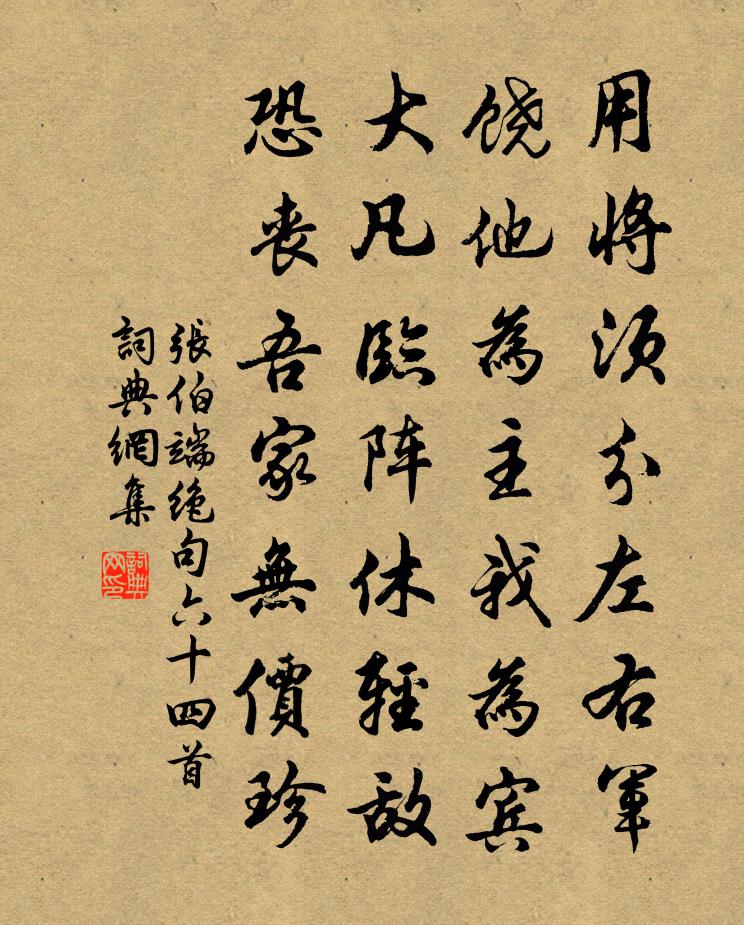 用將須分左右軍
饒他為主我為賓
大凡臨阵休輕敌
恐喪吾家無價珍
張伯端绝句六十四首
詞典網集
詞典网印